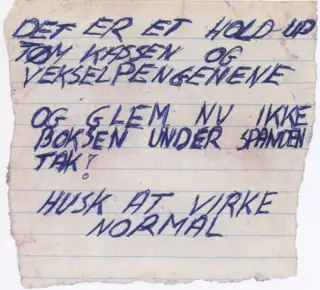 DET ER ET HOLD-UP
TØM KASSEN OG
VEKSELPENGENENE
OG GLEM NU IKKE
BOKSEN UNDER SPANDEN
TAK!
HUSK AT VIRKE
NORMAL